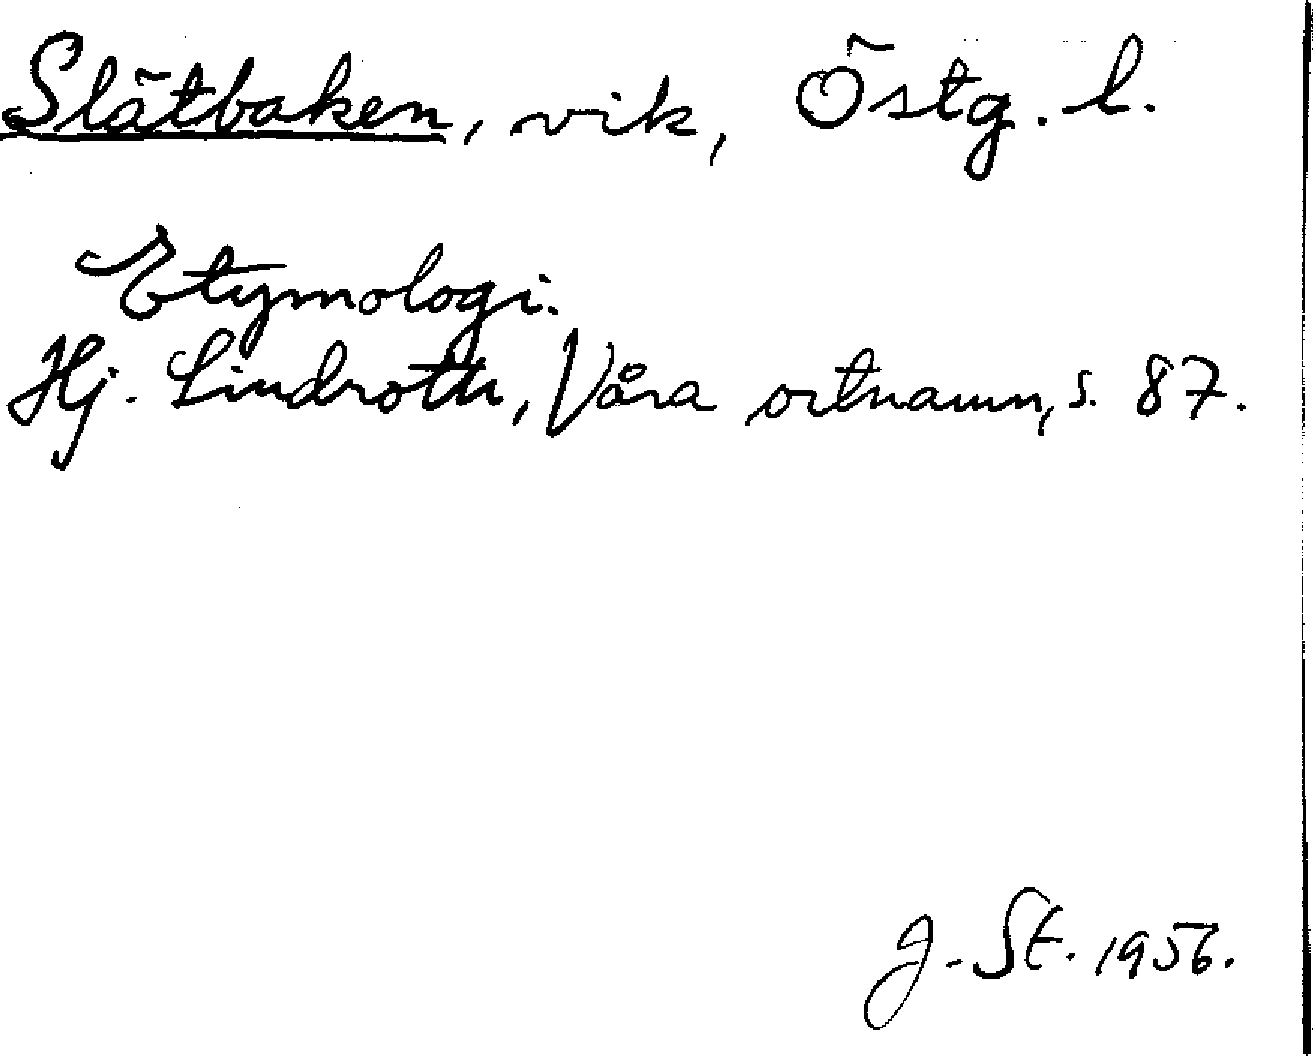 Slätbaken, vik, Östg. l.
Etymologi.
Hj. Lindroth, Våra ortnamn, s. 87.
J. St. 1956.